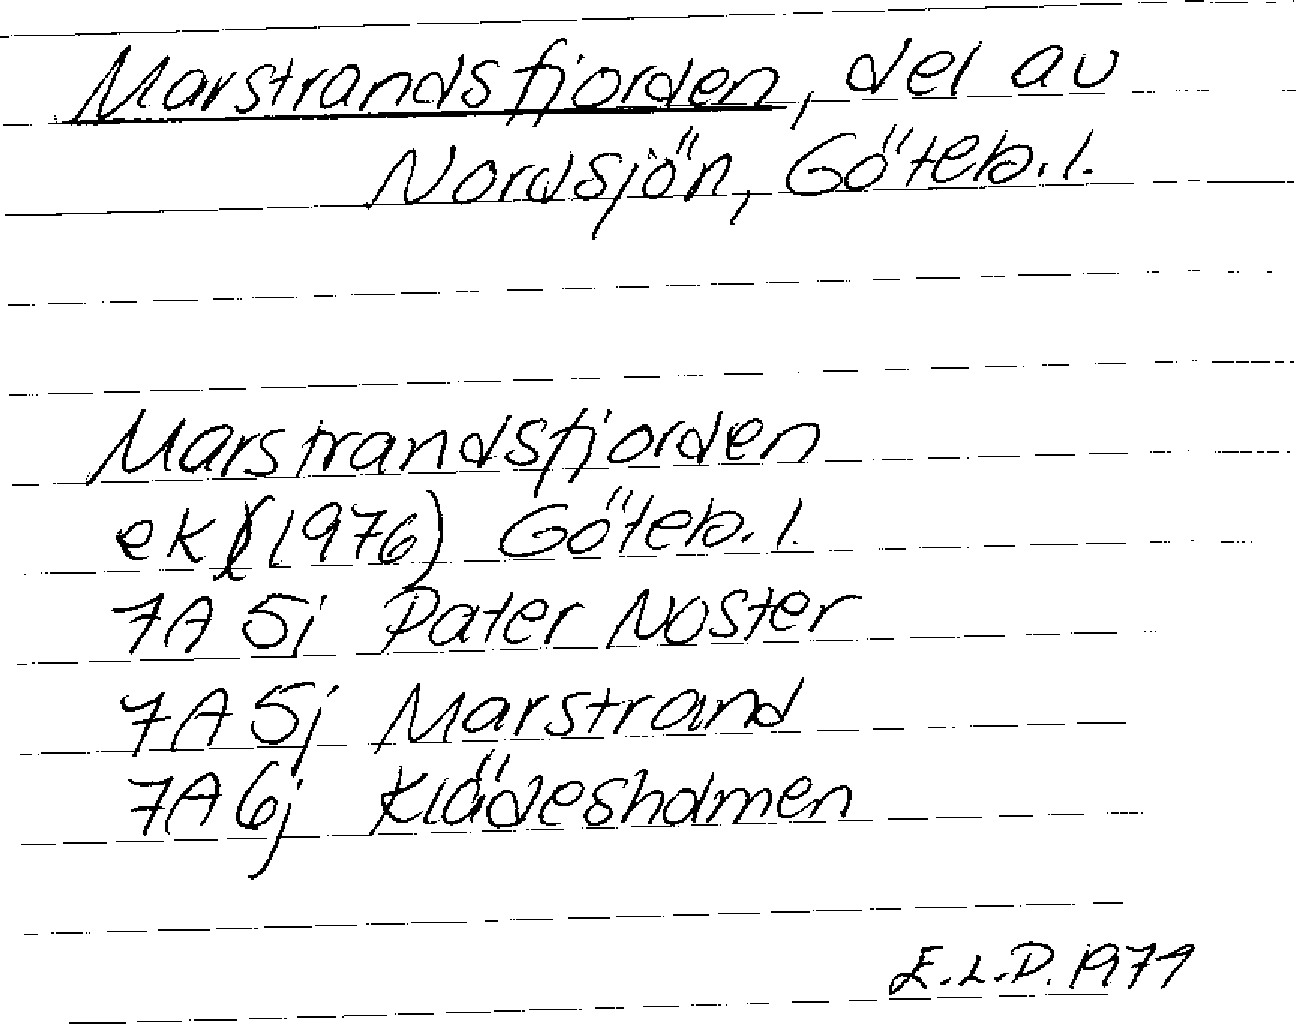 Marstrandsfjorden, del av
Nordsjön, Göteb. l.
Marstrandsfjorden
ek (1976) Göteb. l.
7A 5i Pater Noster
7A 5j Marstrand
7A 6j Klädesholmen
E.L.D. 1979